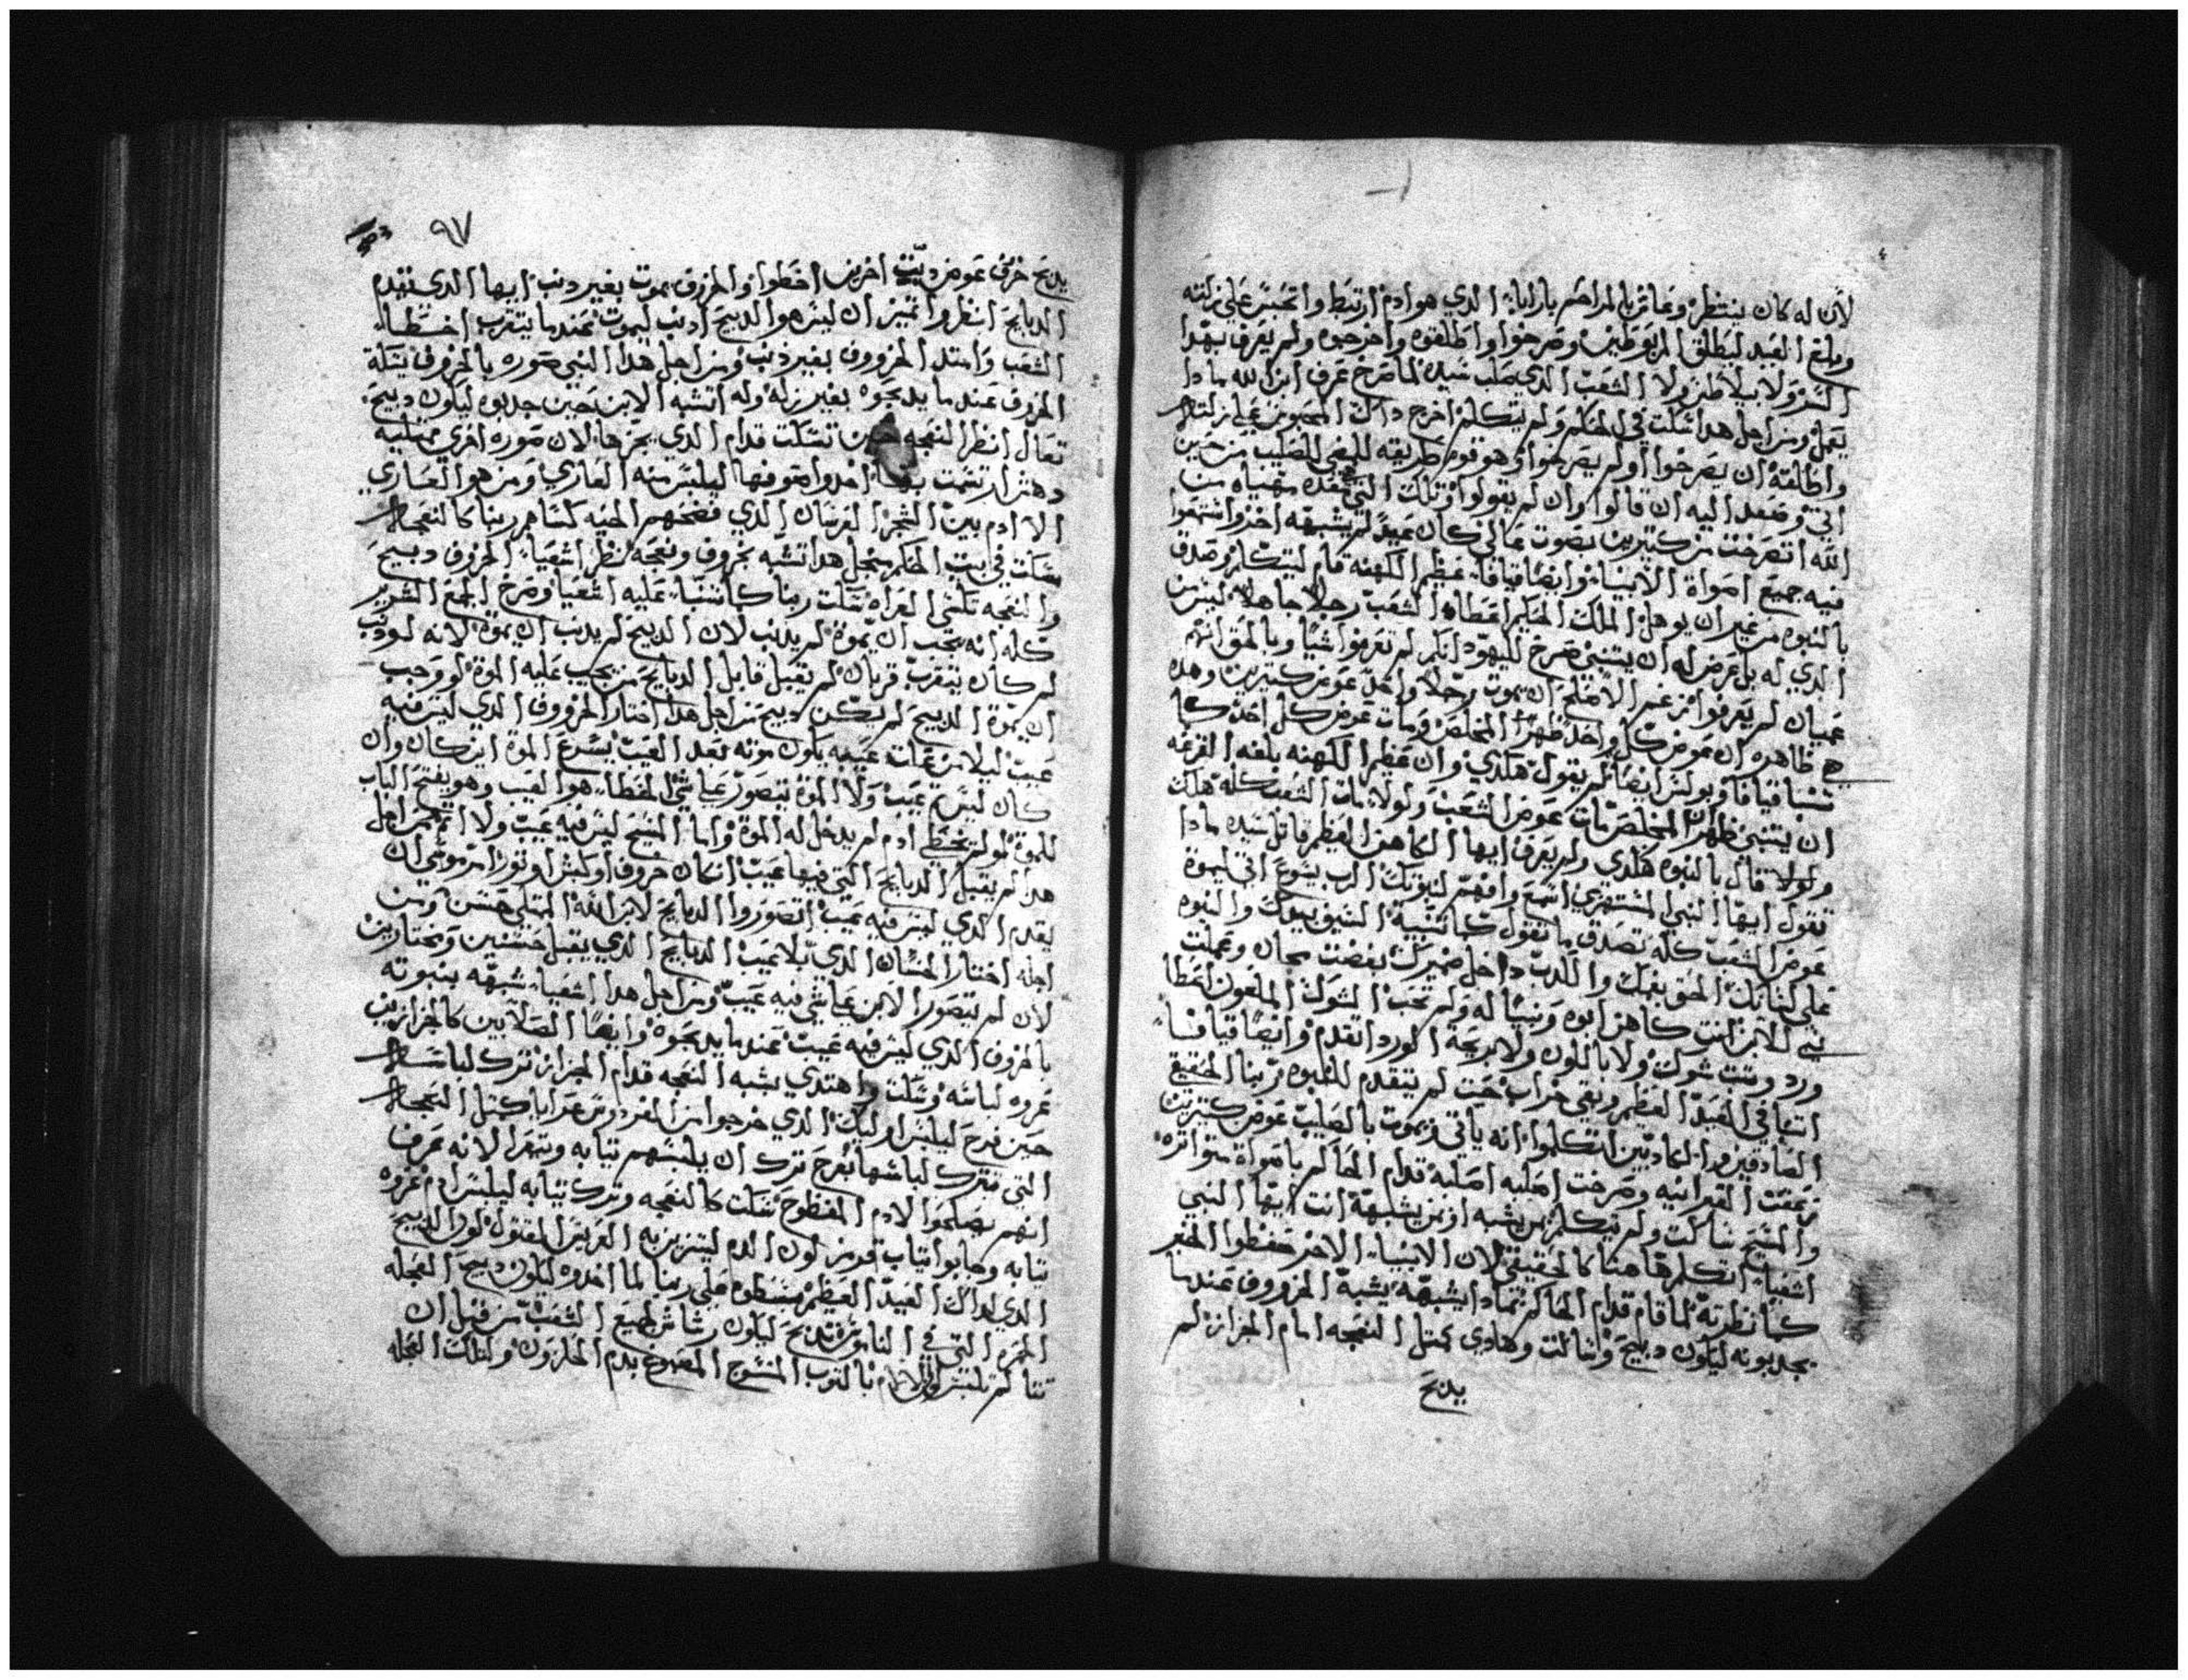 لان له كان ينتظر وعاش بالمراحم باراباش الدي هو ادم ارتبط واتحبس علي زلته
وبلغ العيد ليطلق المربوطين وصرخوا واطلقوه واخرجوه ولم يعرف بهدا
السر ولا بيلاطس ولا الشعب الدي صلب سيده لما صرخ عرف ابن الله مادا
يعمل ومن اجل هدا سكت في الحكم ولم يتكلم اخرج داك المحبوس علي زلته
واطلقه ان يصرخوا او لم يصرخوا وهو قوم طريقه للمضي للصليب من حين
اتي وصعد اليه ان قالوا وان لم يقولوا وتلك التي
الله اتصرخت من كتيرين بصوت عالي كان عبيد لم يشبهه اخر واشتهوا
فيه جميع اصواة الانبيا وايضا قيافا عظيم الكهنه قام ليتكلم وصدق
بالنبوه من غير ان يوهل الملك الحكيم اعطاه الشعب رجلا جاهلا ليس
الدي له بل عرض له ان يتنبي صرخ لليهود انكم لم تعرفوا شيا وبالحق انهم
عميان لم يعرفوا من غير الاصلح ان يموت رجلا واحد عوض كتيرين وهده
هي ظاهره ان عوض كل واحد ظهر المخلص ومات عوض كل احد كما
تنبا قيافا وبولس ايضا لم يقول هكدي وان عظيم الكهنه بلغه القرعه
ان يتنبي ظهر ان المخلص مات عوض الشعب ولولا مات الشعب كله هلك
ولولا قال بالنبوه هكدي ولم يعرف ايها الكاهن العظيم قاتل سيده مادا
تقول ايها النبي المستهزي اسمع وافهم لنبوتك الرب يشوع اتي ليموة
عوض الشعب كله تصدق ما تقول كما تنبية السيف بيدك والنبوه
علي لسانك الحق بفمك والكدب داخل ضميرك بغضت مجان وعملت
بي للابن انت كاهن ابوه ونبيا له ولم تحب الشوك الملعون اعطا
ورد ونبت شوك ولا باللون ولا بريحة الورد اتقدم وايضا قيافا
اتنبا في العيد العظيم وبقي خراب حيت لم يتقدم للنبوه ربنا الحقيقي
الصادقين والكادبين اتكلموا انه ياتي ويموت بالصليب عوض كتيرين
زعقت العبرانيه وصرخت اصلبه اصلبه قدام الحاكم باصواة متواتره
والمسيح ساكت ولم يتكلم بمن يشبه او بمن يشبهه انت ايها النبي
اشعيا اتكلم هاهنا كالحقيقي لان الانبيا الاخر حفظوا الختم
كما نظرته لما قام قدام الحاكم بمادا يشبهه يشبه الخروف عندما
يجدبونه ليكون دبيح وساكت وهادي كمتل النعجه امام الجزاز لم
يدبح
٩٧
يدبح خروف عوض ديب اخرين اخطوا والخروف يموت بغير دنب ايها الدي تقدم
الدبايح انظر واتميز ان ليس هو الدبيح ادنب ليموت عندما يتقرب اخطا
الشعب وامتد الخروف بغير دنب ومن اجل هدا النبي صوره بالخروف
الخروف عندما يدبحوه بغير زله وله اتشبه الابن حين جدبوه ليكون دبيح
تعال انظر النعجه حين تسكت قدام الدي يجزها لان صوره اخري ممتليه
دهش ارتسمت بها اخدوا صوفها ليلبس منه العاري ومن هو العاري
الا ادم بين الشجر العريان الدي فضحهم الحيه كساهم ربنا كالنعجه
سكت في بيت الحكم من اجل هدا تشبه بخروف ونعجه نظر اشعيا الخروف دبيح
والنعجه تكسي العراه سكت ربنا كما تنبا عليه اشعيا وصرخ الجمع الشرير
كله انه يجب ان يموة لم يدنب لان الدبيح لم يدنب ان يموة لانه لو دنب
لم كان يتقرب قربان لم يقبل قابل الدبايح من يجب عليه الموة لو وجب
ان يموة الدبيح لم يكن دبيح من اجل هدا اختار الخروف الدي ليس فيه
عيب ليلا من عيبه يكون موته بعد العيب يسرع الموة اين كان وان
كان ليس عيب ولا الموة تتصور علي شي الخطا هو العيب وهو يفتح الباب
للموة لو لم يخطي ادم لم يدخل له الموة واما المسيح ليس فيه عيب ولا اتم من اجل
هدا لم يقبل الدبايح التي فيها عيب ان كان خروف او كبش او تور امر موسي ان
يقدم الدي ليس فيه عيب اتصوروا الدبايح لابن الله الممتلي حسن ومن
اجله اختار الحسان الدي بلا عيب الدبايح الدي يقبل حسنين ومختارين
لان لم يتصور الابن علي شي فيه عيب ومن اجل هدا اشعيا شبهه بنبوته
بالخروف الدي ليس فيه عيب عندما يدبحوه وايضا الصالبين كالجزازين
عروه لباسه وسكت واهتدي يشبه النعجه قدام الجزاز ترك لباسه
حين فرح ليلبس اوليك الدي خرجوا من الفردوس عرايا كمتل النعجه
التي تترك لباسها بفرح ترك ان يلبسهم تيابه وتعرا لانه عرف
انهم يصلحوا لادم المفضوح سكت كالنعجه وترك تيابه ليلبس ادم عروه
تيابه وجابوا تياب قرمز لون الدم ليتزين به العريس المقتول لون الدبيح
الدي لداك العيد العظيم علي ربنا لما اخدوه ليكون دبيح العجله
الحمره التي في الناموس تدبح ليكون رشاش لجميع الشعب من قبل ان
بالتوب المنسوج المصبوغ بدم الحلزون ولتلك العجله